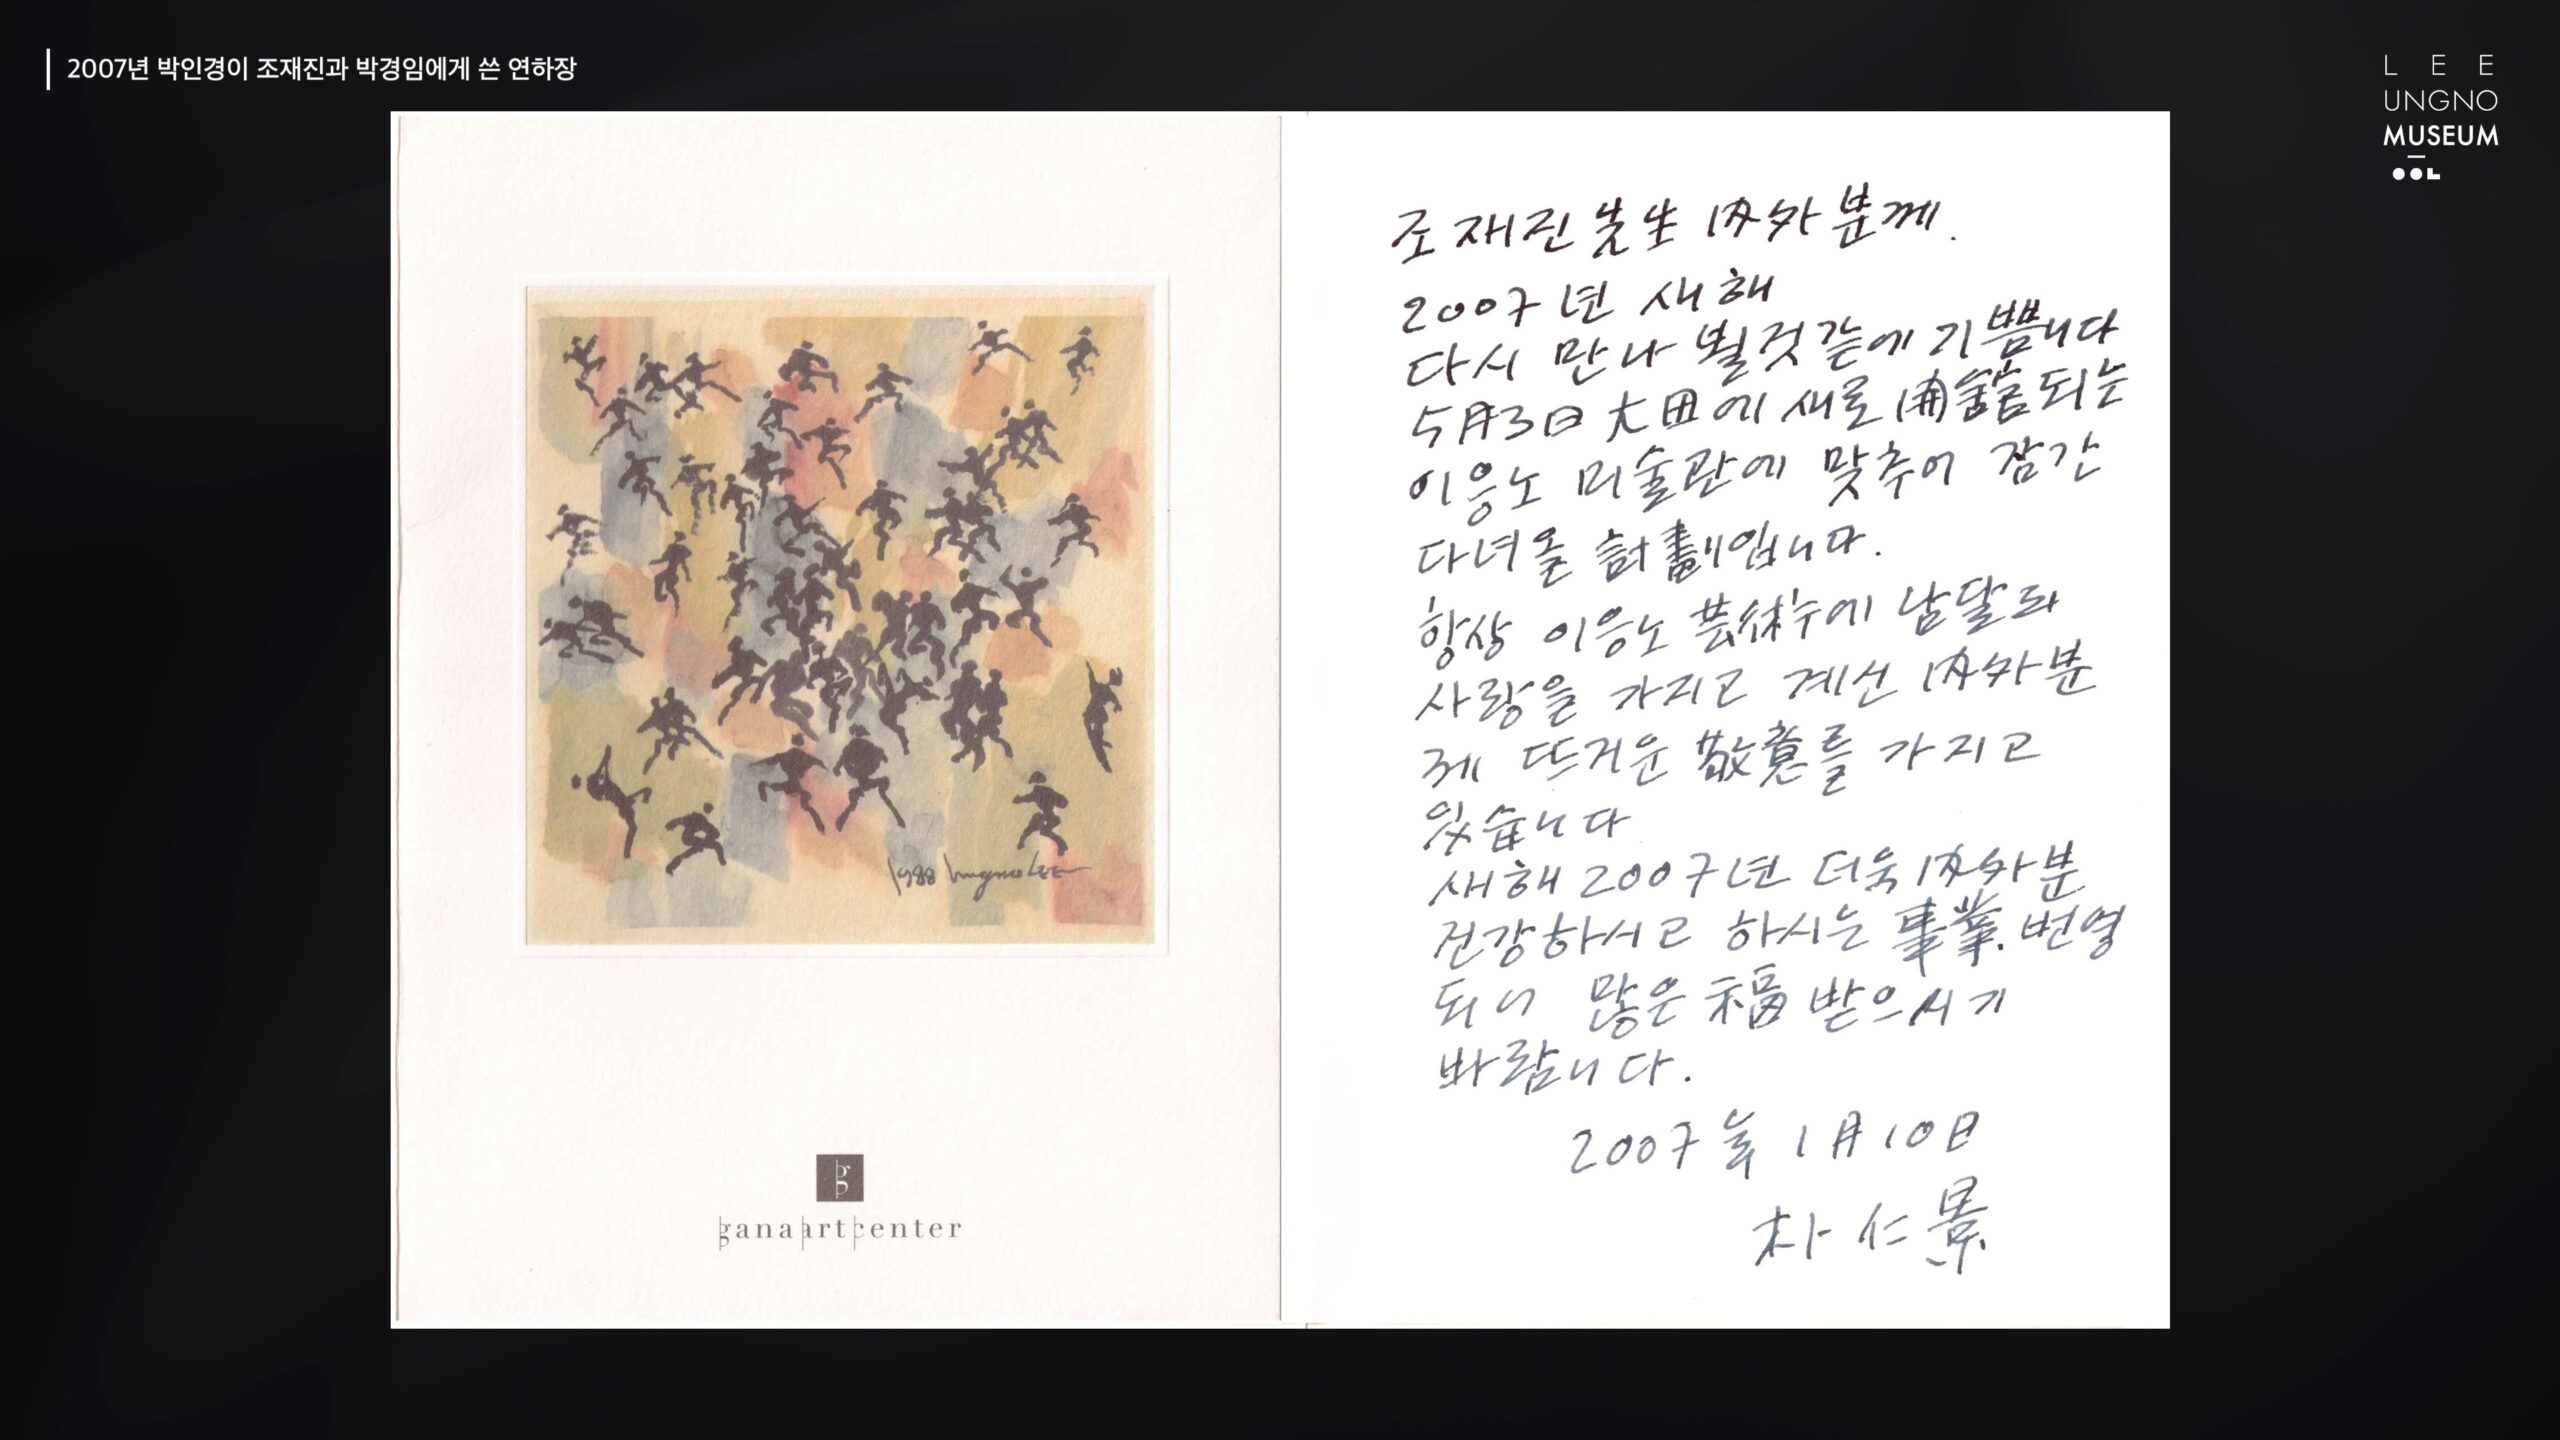 2007년 박인경이 조재진과 박경임에게 쓴 연하장
LEE
UNGNO
MUSEUM
1988 Ungno LEE
g
gana art center
조재진 先生 內外분께.
2007년 새해
다시 만나 뵐것같에 기쁩니다
5月3日 大田에 새로 開舘되는
이응노 미술관에 맞추어 잠간
다녀올 計劃입니다.
항상 이응노 芸術에 남달리
사랑을 가지고 계신 內外분
께 뜨거운 敬意를 가지고
있습니다
새해 2007년 더욱 內外분
건강하시고 하시는 事業. 번영
되니 많은 福 받으시기
바람니다.
2007年 1月10日
朴仁景